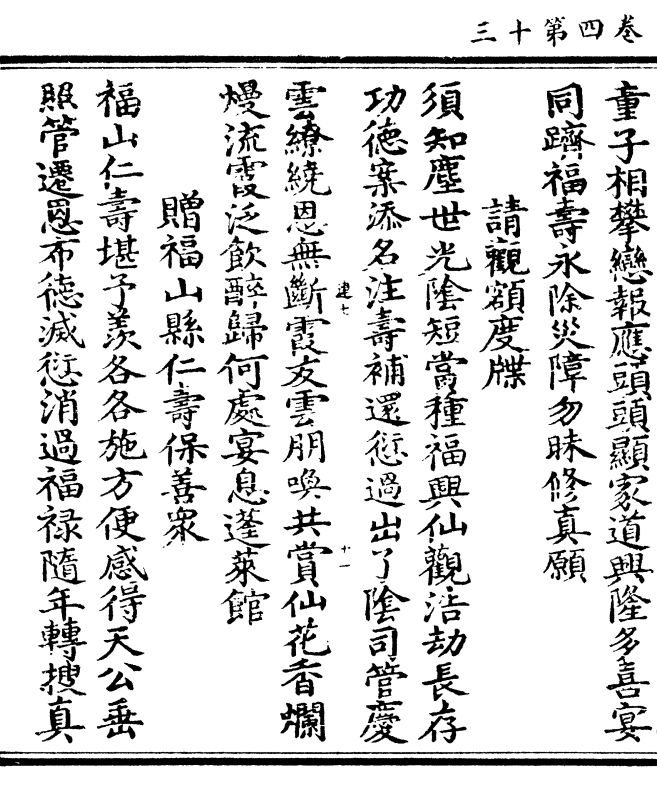 三十第四卷
童子相攀戀報應頭頭顯家道興隆多喜宴
同躋福壽永除災障勿昧修真願
請觀額度牒
須知塵世光陰短當種福興仙觀浩劫長存
功德案添名注壽補還愆過出了陰司管慶
連七
十一
雲繚繞恩無斷霞友雲朋喚共賞仙花香爛
熳流霞泛飲醉歸何處宴息蓬萊館
贈福山縣仁壽保善衆
福山仁壽堪予羨各各施方便感得天公垂
照管遷恩布德滅愆消過福禄隨年轉搜真